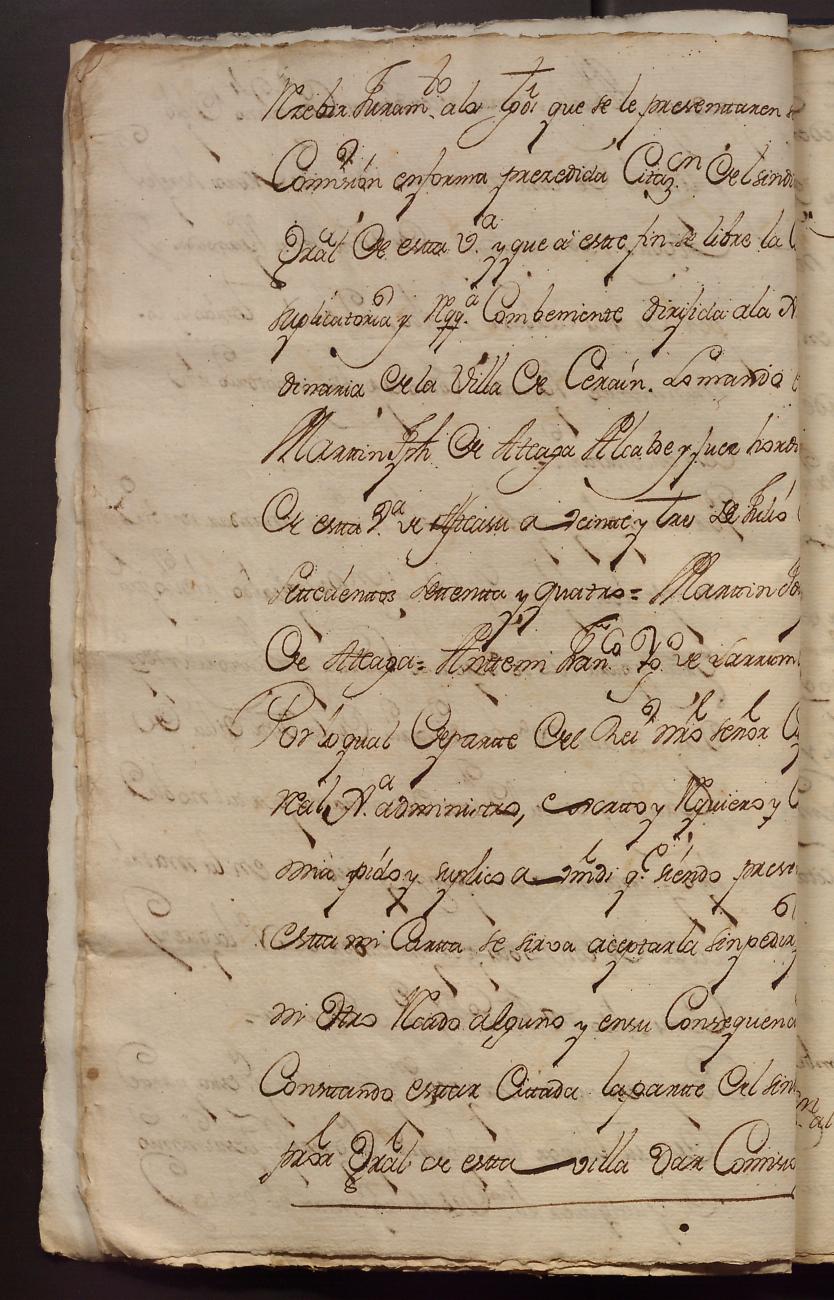 Rezebir Juramto. a los tgos. que se le presentaren
Comisión en forma prezedida Citazon. del sindi
Gral de esta Va. y que a este fin se libre la
suplicatoria y Rqqa. Combeniente dirijida a la
dinaria de la Villa de Cerain. Lo mando
Martin Jph de Ateaga Alcalde y Juez hordi
de esta Va. de Asteasu a Veinte y tres de Julio
settecientos settenta y quatro = Martin Jo
de Ateaga = Antemi Franco. de Larrum
Por lo qual de parte del Rei nro señor
Real Na. administro, exorto y Rquiero y
mia pido y suplico a vmd q. siendo prese
esta mi Carta se sirva aceptarla sin pedir
ni otro Rcado alguno y en su Consequenc
Constando estar Citada la parte del sin
pror Gral de esta villa Dar Comisio